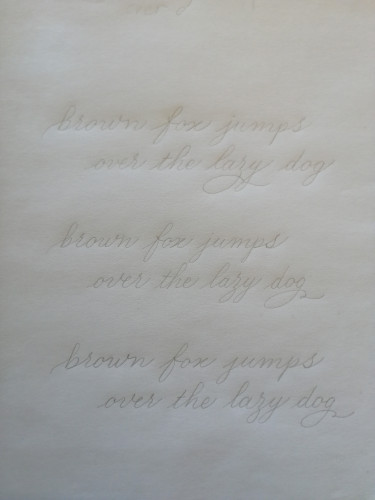 over
brown fox jumps
over the lazy dog
brown fox jumps
over the lazy dog
brown fox jumps
over the lazy dog